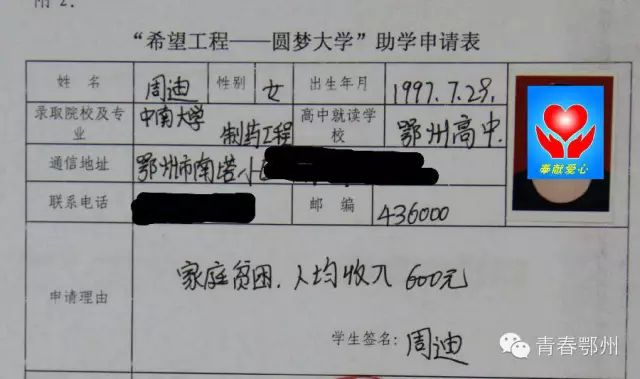 附 2:
“希望工程——圆梦大学”助学申请表
姓 名 周迪 性别 女 出生年月 1997.7.28.
录取院校及专业 中南大学 制药工程 高中就读学校 鄂州高中.
通信地址 鄂州市南塔小
联系电话 邮 编 436000
申请理由 家庭贫困、人均收入 600元
学生签名: 周迪
奉献爱心
青春鄂州